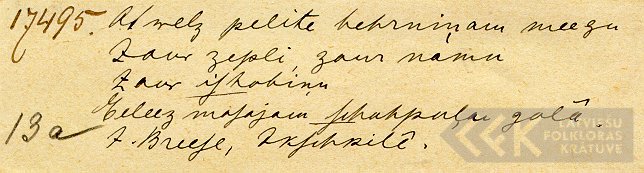 17495. Atwelz pelite behrniņam meegu
Zaur zepli, zaur namu
Zaur istobiņu
Eeleez masajam schuhpuļa galâ.
J. Breese, Ikschkilê.
13a
LATVIEŠU
FOLKLORAS
KRĀTUVE